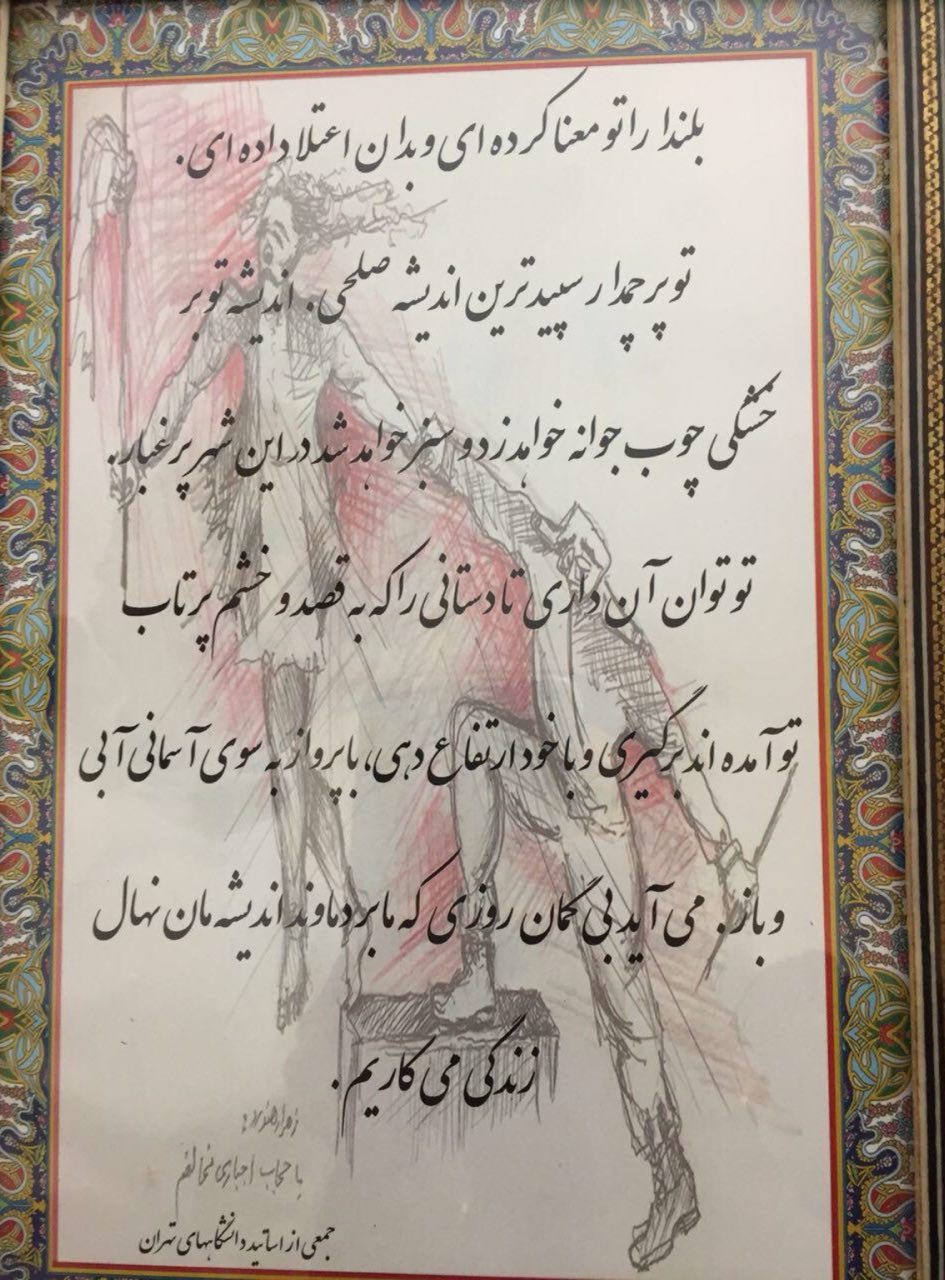 بلندا را تو معنا کرده ای و بدان اعتلا داده ای.
تو پرچمدار سپیدترین اندیشه صلحی. اندیشه تو بر
خشکی چوب جوانه خواهد زد و سبز خواهد شد در این شهر پر غبار.
تو توان آن داری تا دستانی را که به قصد و خشم پرتاب
تو آمده اند برگیری و با خود ارتفاع دهی، با پرواز به سوی آسمانی آبی
و باز. می آید بی گمان روزی که ما بر دماوند اندیشه مان نهال
زندگی می کاریم.
زهرا
با حجاب اجباری مخالفم
جمعی از اساتید دانشگاههای تهران